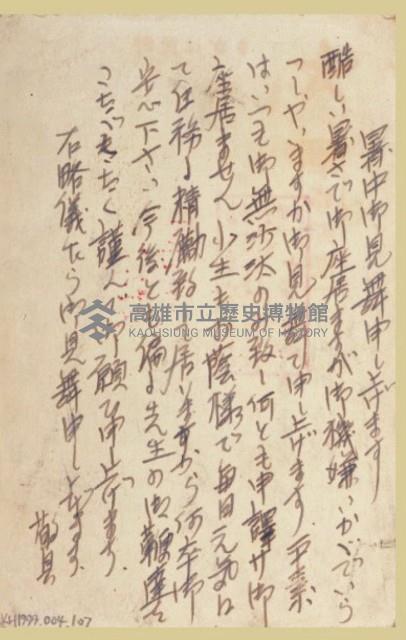 暑中御見舞申し上げます
酷しい暑さで御座居ますが御機嫌いかゞでいら
つしやいますか御見舞申し上げます。平素
はいつも御無沙汰のみ致し何とも申譯ザ御
座居ません 小生も御蔭様で毎日元気に
て任務に精勤致し居りますから何卒御
安心下さい 今後とも不備な先生の御鞭撻を
謹んで御願ひ申し上げます。
右略儀ながら御見舞申し上げます。
敬具
高雄市立歷史博物館
KAOHSIUNG MUSEUM OF HISTORY
KH1999.004.107